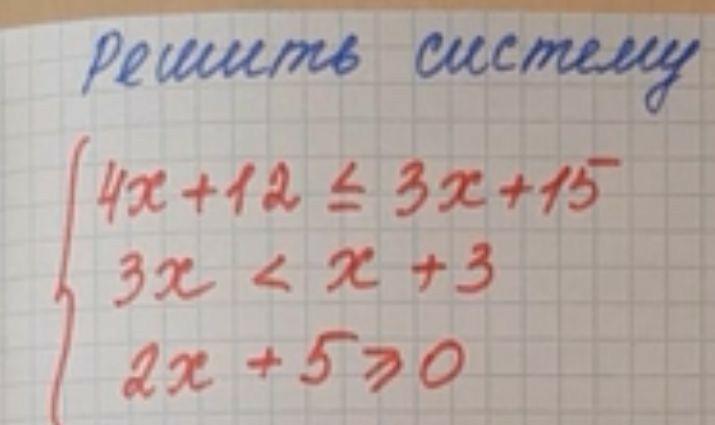 Решить систему
4x+12 ≤ 3x+15
3x < x + 3
2x + 5 ⩾ 0